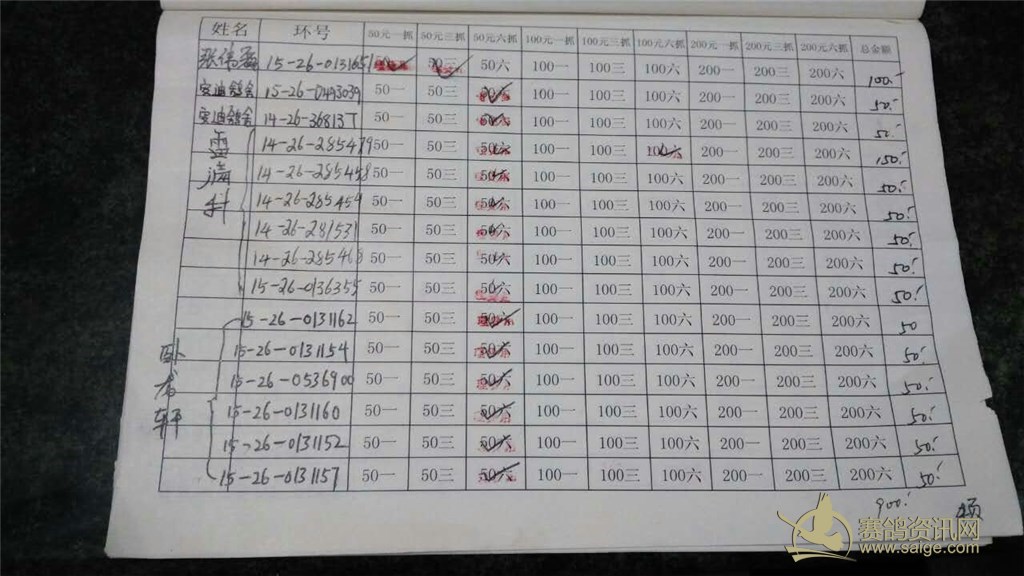 姓名 环号 50元一抓 50元三抓 50元六抓 100元一抓 100元三抓 100元六抓 200元一抓 200元三抓 200元六抓 总金额
15-26-0131651 50三 50六 100一 100三 100六 200一 200三 200六 100.-
15-26- 50一 50三 50六 100一 100三 100六 200一 200三 200六 50.-
14-26-368137 50一 50三 50六 100一 100三 100六 200一 200三 200六 50.-
14-26-285479 50一 50三 50六 100一 100三 100六 200一 200三 200六 150.-
14-26-285458 50一 50三 50六 100一 100三 100六 200一 200三 200六 50.-
14-26-285459 50一 50三 50六 100一 100三 100六 200一 200三 200六 50.-
14-26-281531 50一 50三 50六 100一 100三 100六 200一 200三 200六 50.-
14-26-285468 50一 50三 50六 100一 100三 100六 200一 200三 200六 50.-
15-26-0136355 50一 50三 50六 100一 100三 100六 200一 200三 200六 50.-
15-26-0131162 50一 50三 50六 100一 100三 100六 200一 200三 200六 50
卧龙轩
15-26-0131154 50一 50三 50六 100一 100三 100六 200一 200三 200六 50.-
15-26-0536900 50一 50三 50六 100一 100三 100六 200一 200三 200六 50.-
15-26-0131160 50一 50三 50六 100一 100三 100六 200一 200三 200六 50.-
15-26-0131152 50一 50三 50六 100一 100三 100六 200一 200三 200六 50.-
15-26-0131157 50一 50三 50六 100一 100三 100六 200一 200三 200六 50.-
900.-
赛鸽资讯网
www.saige.com